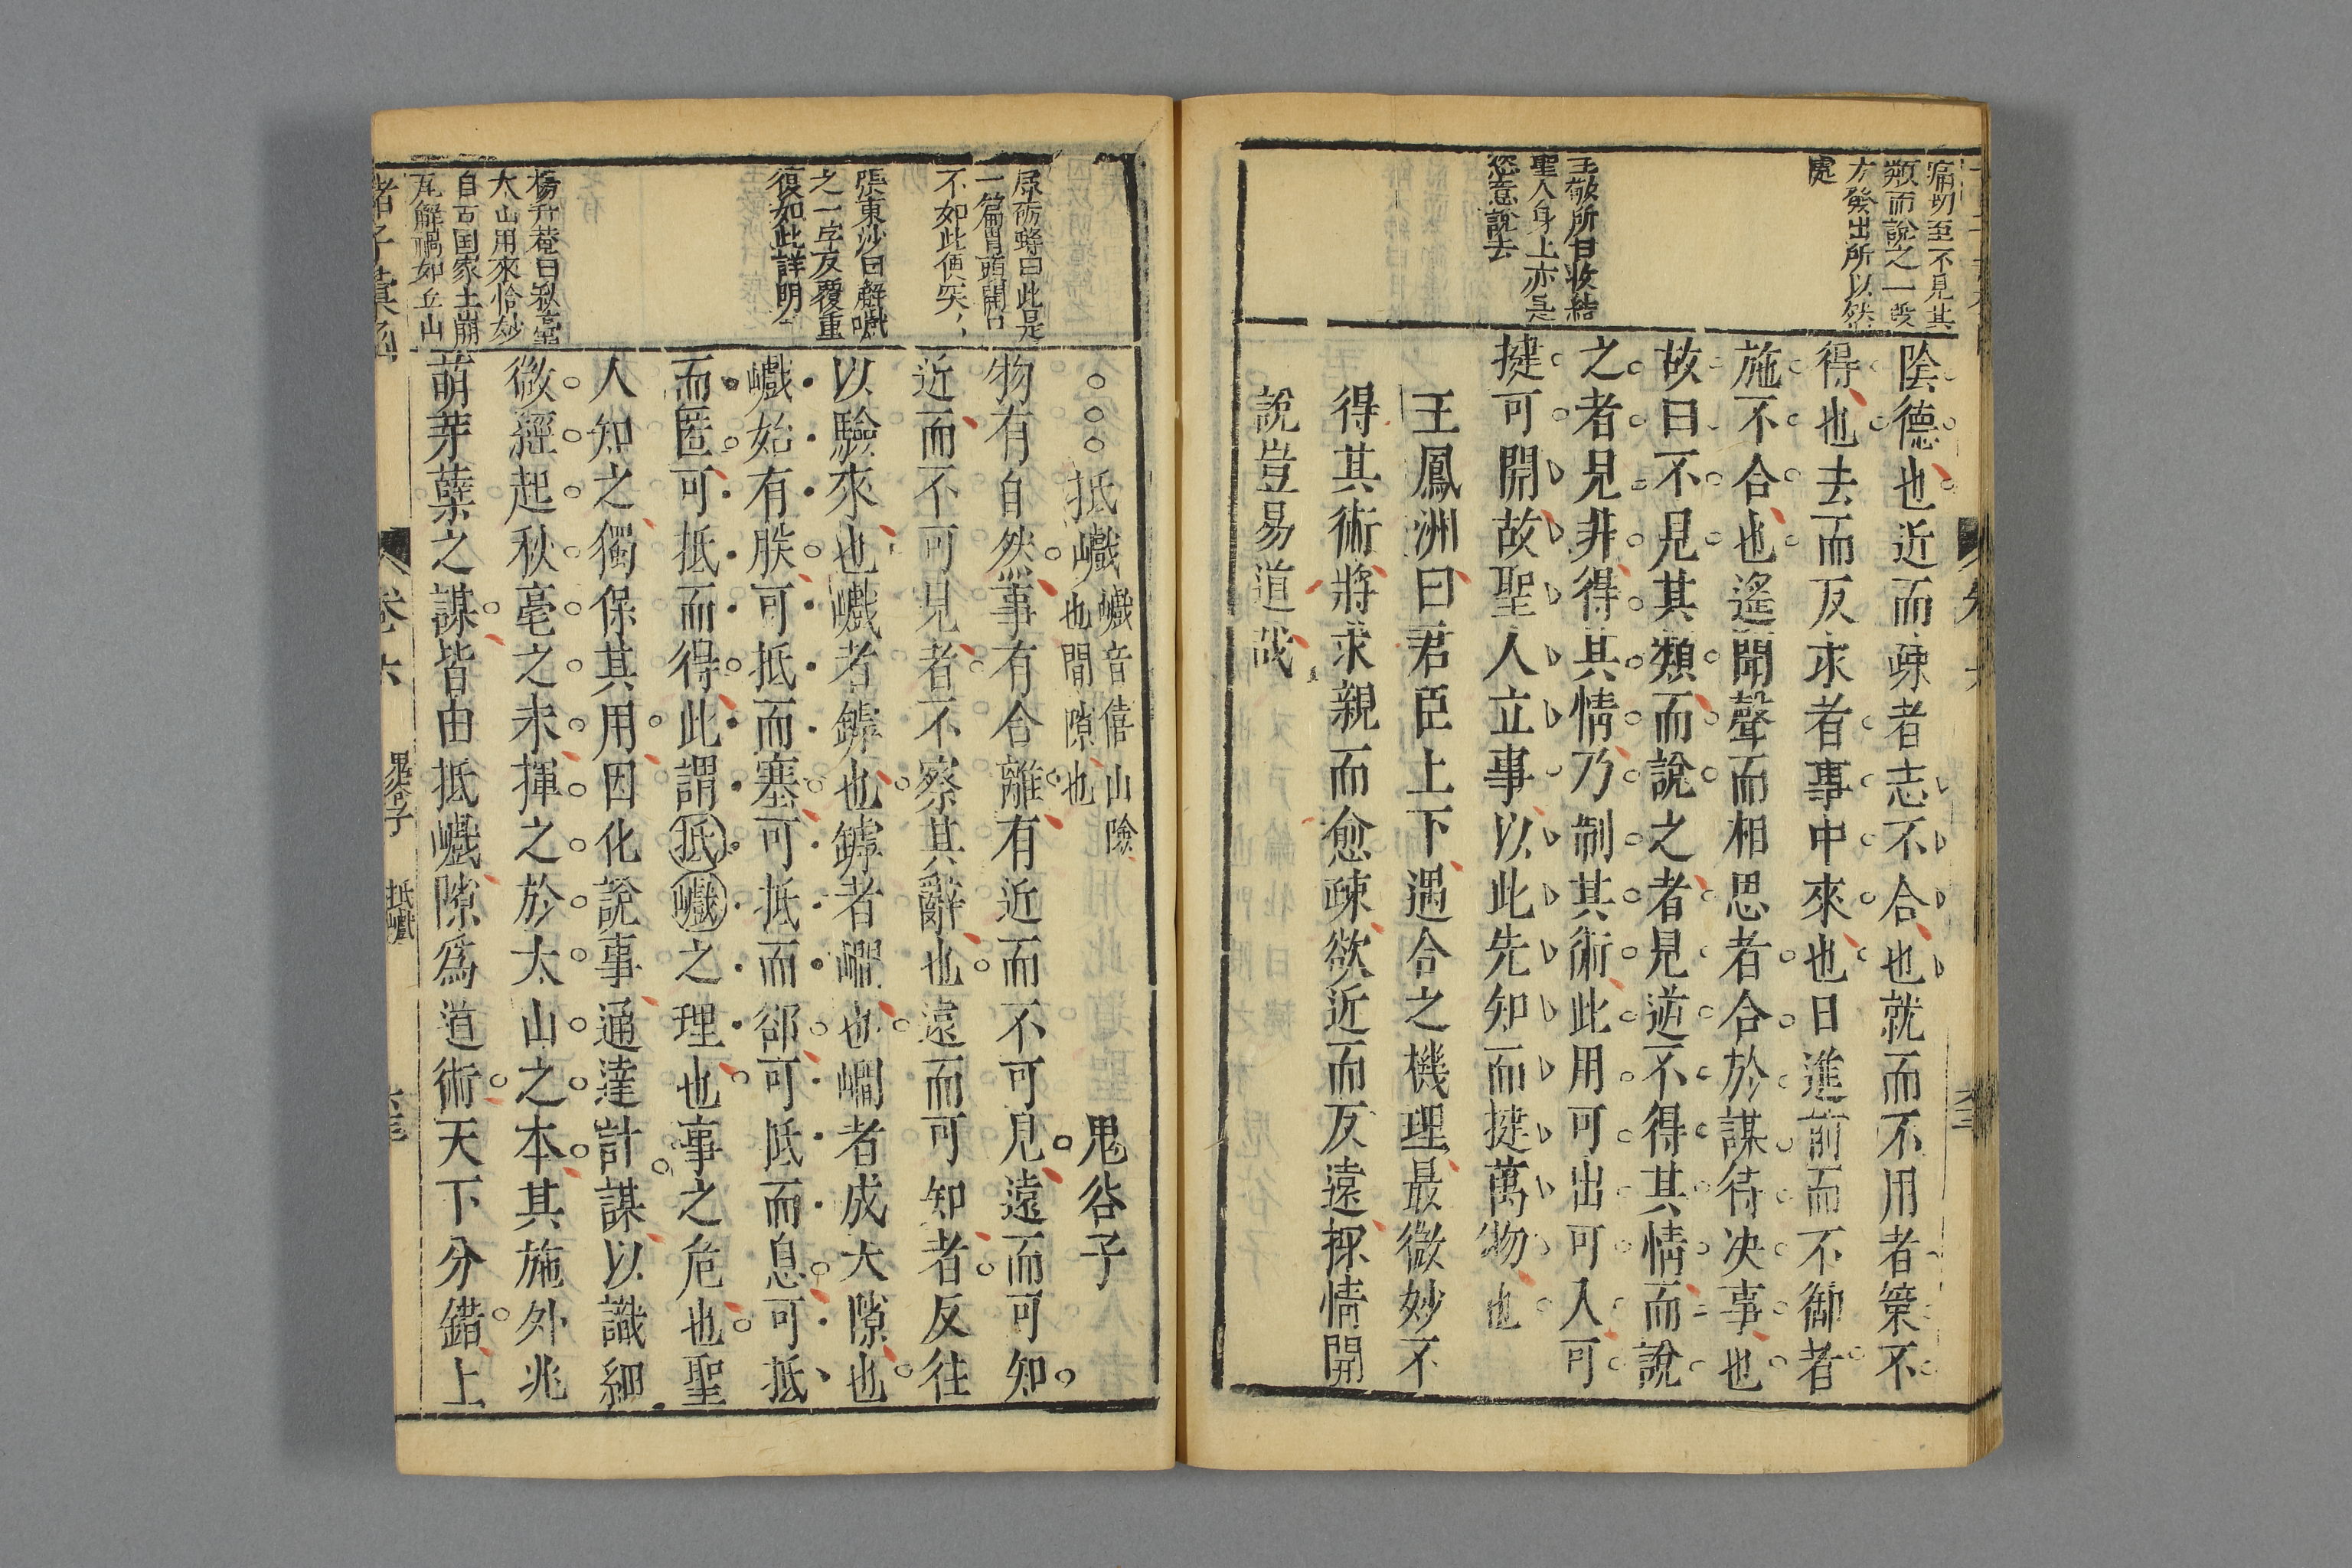 痛切至不見其
類而說之一段
方發出所以然
處
王敬所曰收結
聖人身上亦是
恣意說去
陰德也近而疎者志不合也就而不用者策不
得也去而反求者事中來也日進前而不御者
施不合也遙聞聲而相思者合於謀待决事也
故曰不見其類而說之者見逆不得其情而說
之者見非得其情乃制其術此用可出可入可
揵可開故聖人立事以此先知而揵萬物也
王鳳洲曰君臣上下遇合之機理最微妙不
得其術將求親而愈疎欲近而反遠揣情開
說豈易道哉
曰此是
一篇冒頭開口
不如此便突
張東沙曰解巇
之一字反覆重
復如此詳明
楊升菴曰秋毫
太山用來恰妙
自古国家土崩
瓦解禍如丘山
抵巇巇音僖山險也間隙也 鬼谷子
物有自然事有合離有近而不可見遠而可知
近而不可見者不察其辭也遠而可知者反往
以驗來也巇者罅也罅者㵎也㵎者成大隙也
巇始有朕可抵而塞可抵而郤可抵而息可抵
而匿可抵而得此謂抵巇之理也事之危也聖
人知之獨保其用因化說事通達計謀以識細
微經起秋毫之末揮之於太山之本其施外兆
萌芽蘖之謀皆由抵巇隙為道術天下分錯上
諸子彙函
卷六
鬼谷子
抵巇